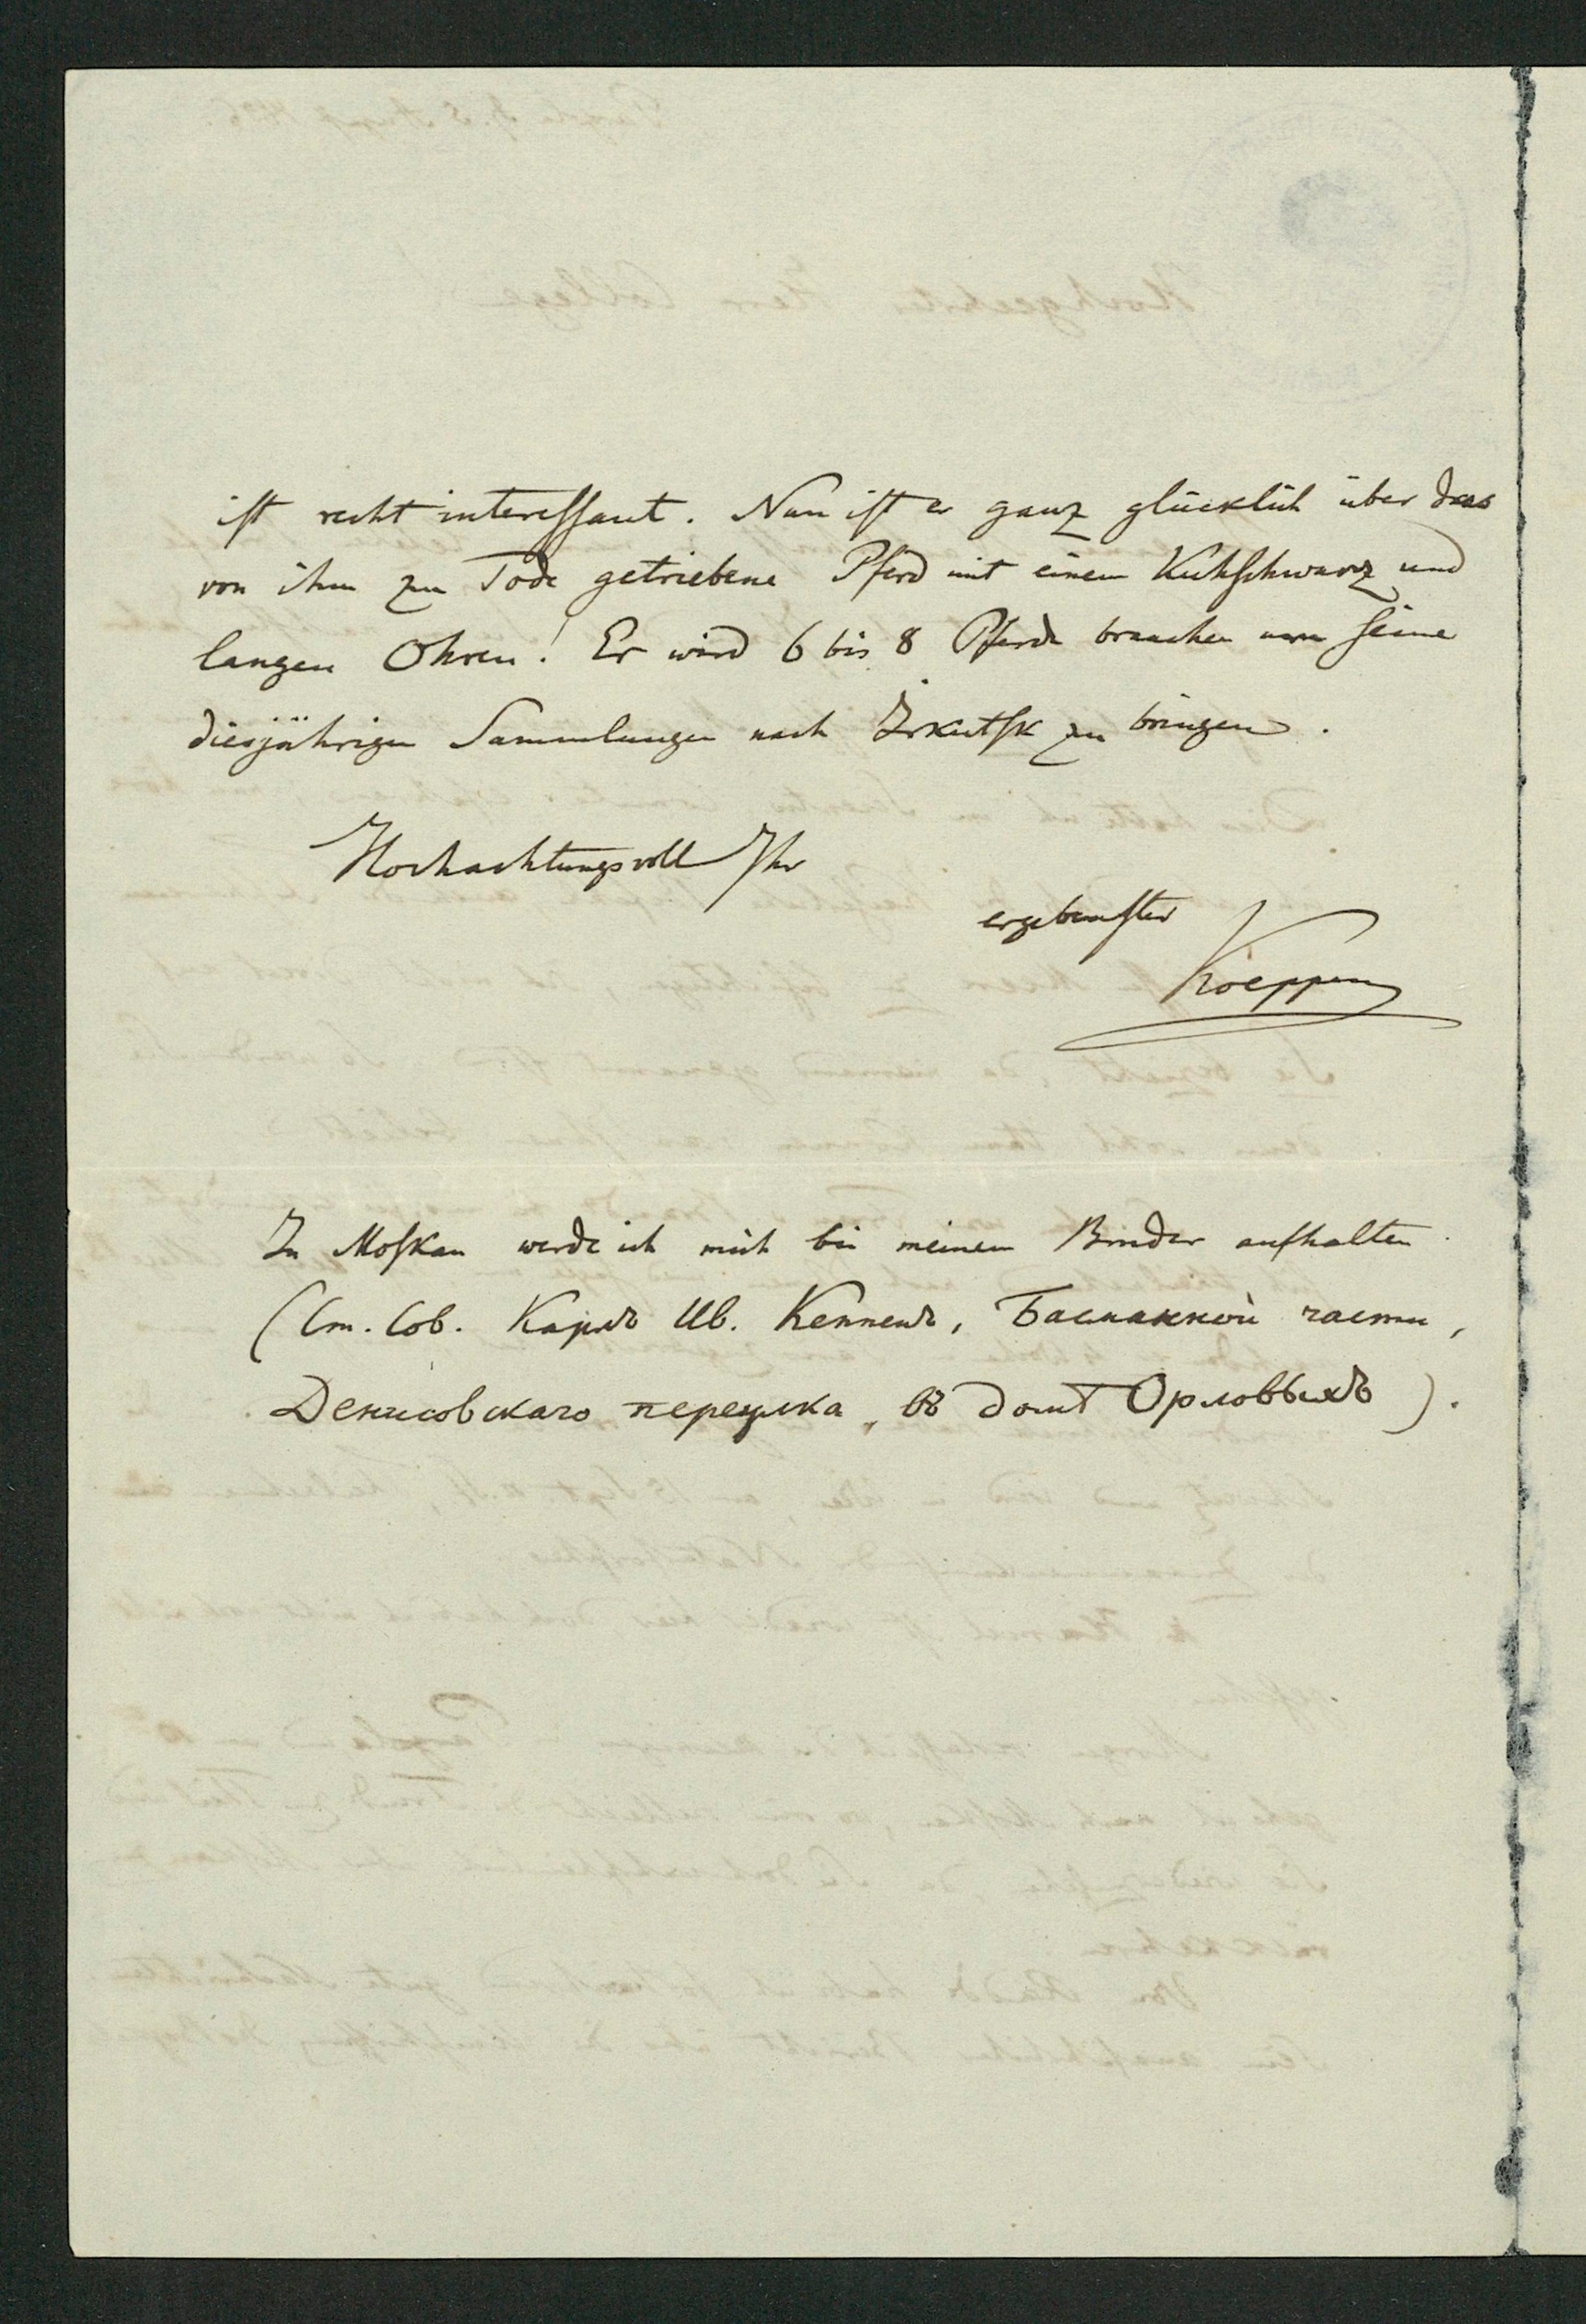 ist recht interessant. Nun ist er ganz glücklich über das
von ihm zu Tode getriebene Pferd mit einem Kuhschwanz und
langen Ohren! Er wird 6 bis 8 Pferde brauchen um seine
diesjährigen Sammlungen nach Irkutsk zu bringen.
Hochachtungsvoll Ihr
ergebenster
Koeppen
In Moskau werde ich mich bei meinem Bruder aufhalten.
(Ст. Сов. Карлъ Ив. Кеппенъ, Басманной части,
Денисовскаго переулка, въ домѣ Орловыхъ).